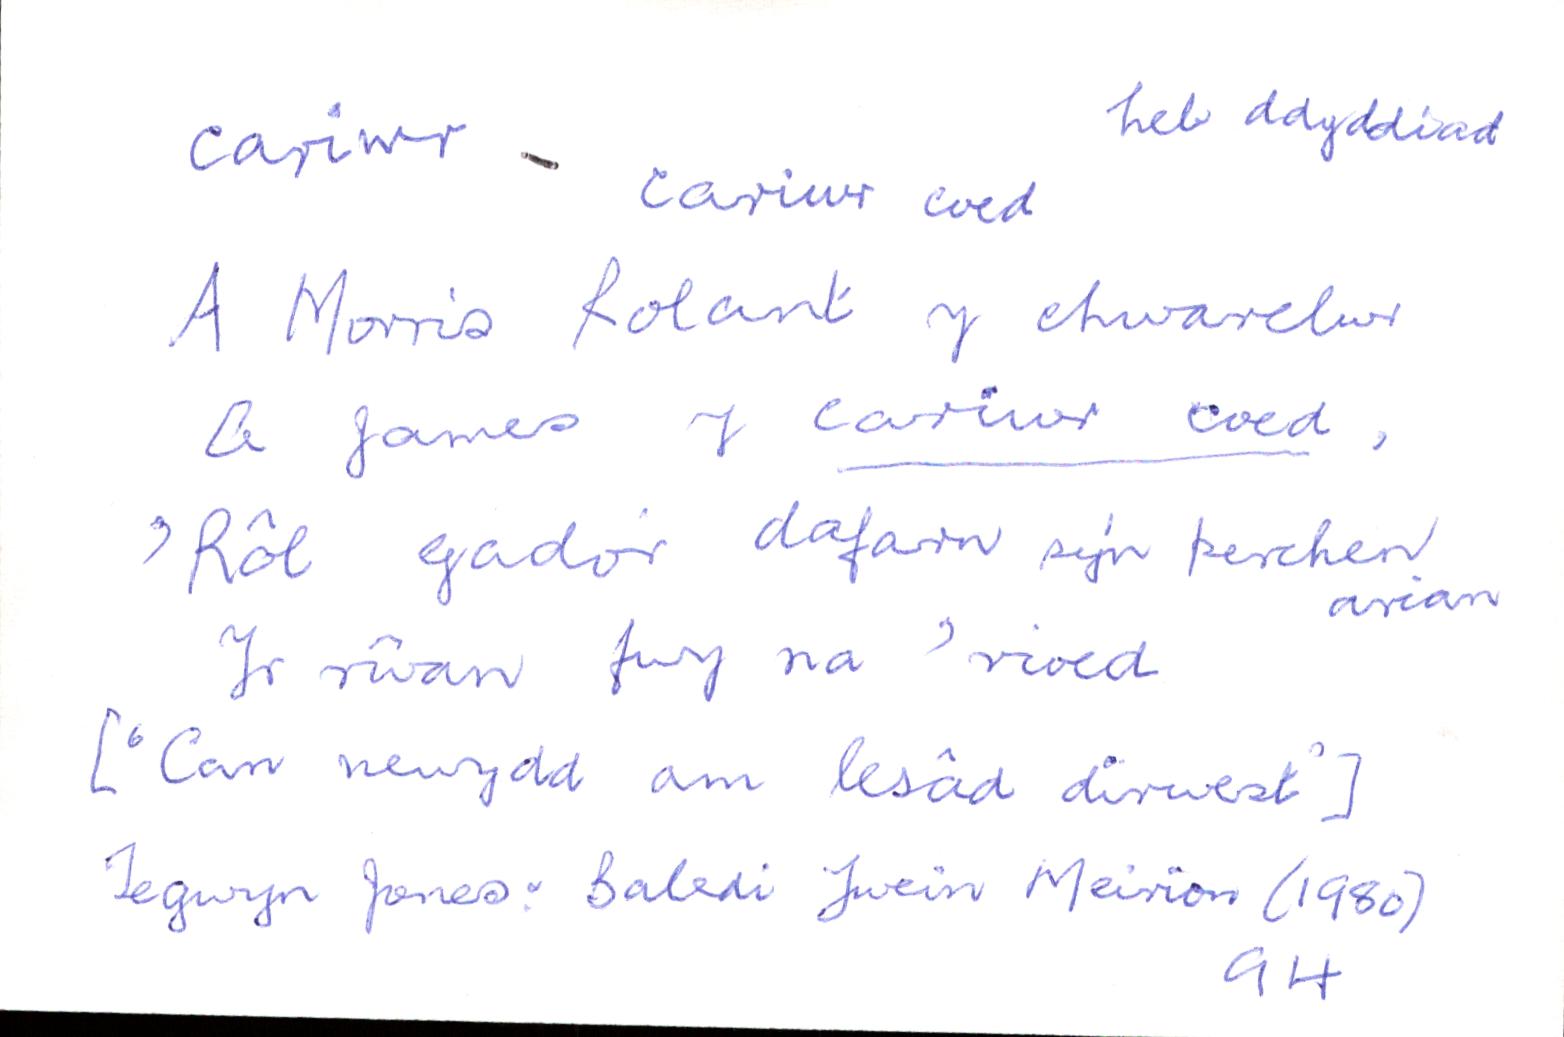 heb ddyddiad
cariwr -
cariwr coed
A Morris Rolant y chwarelwr
A James y cariwr coed,
'Rôl gado'r dafarn sy'n perchen
arian
Yr rŵan fwy na 'rioed
['Can newydd am lesâd dirwest']
Tegwyn Jones: Baledi Ywain Meirion (1980)
94